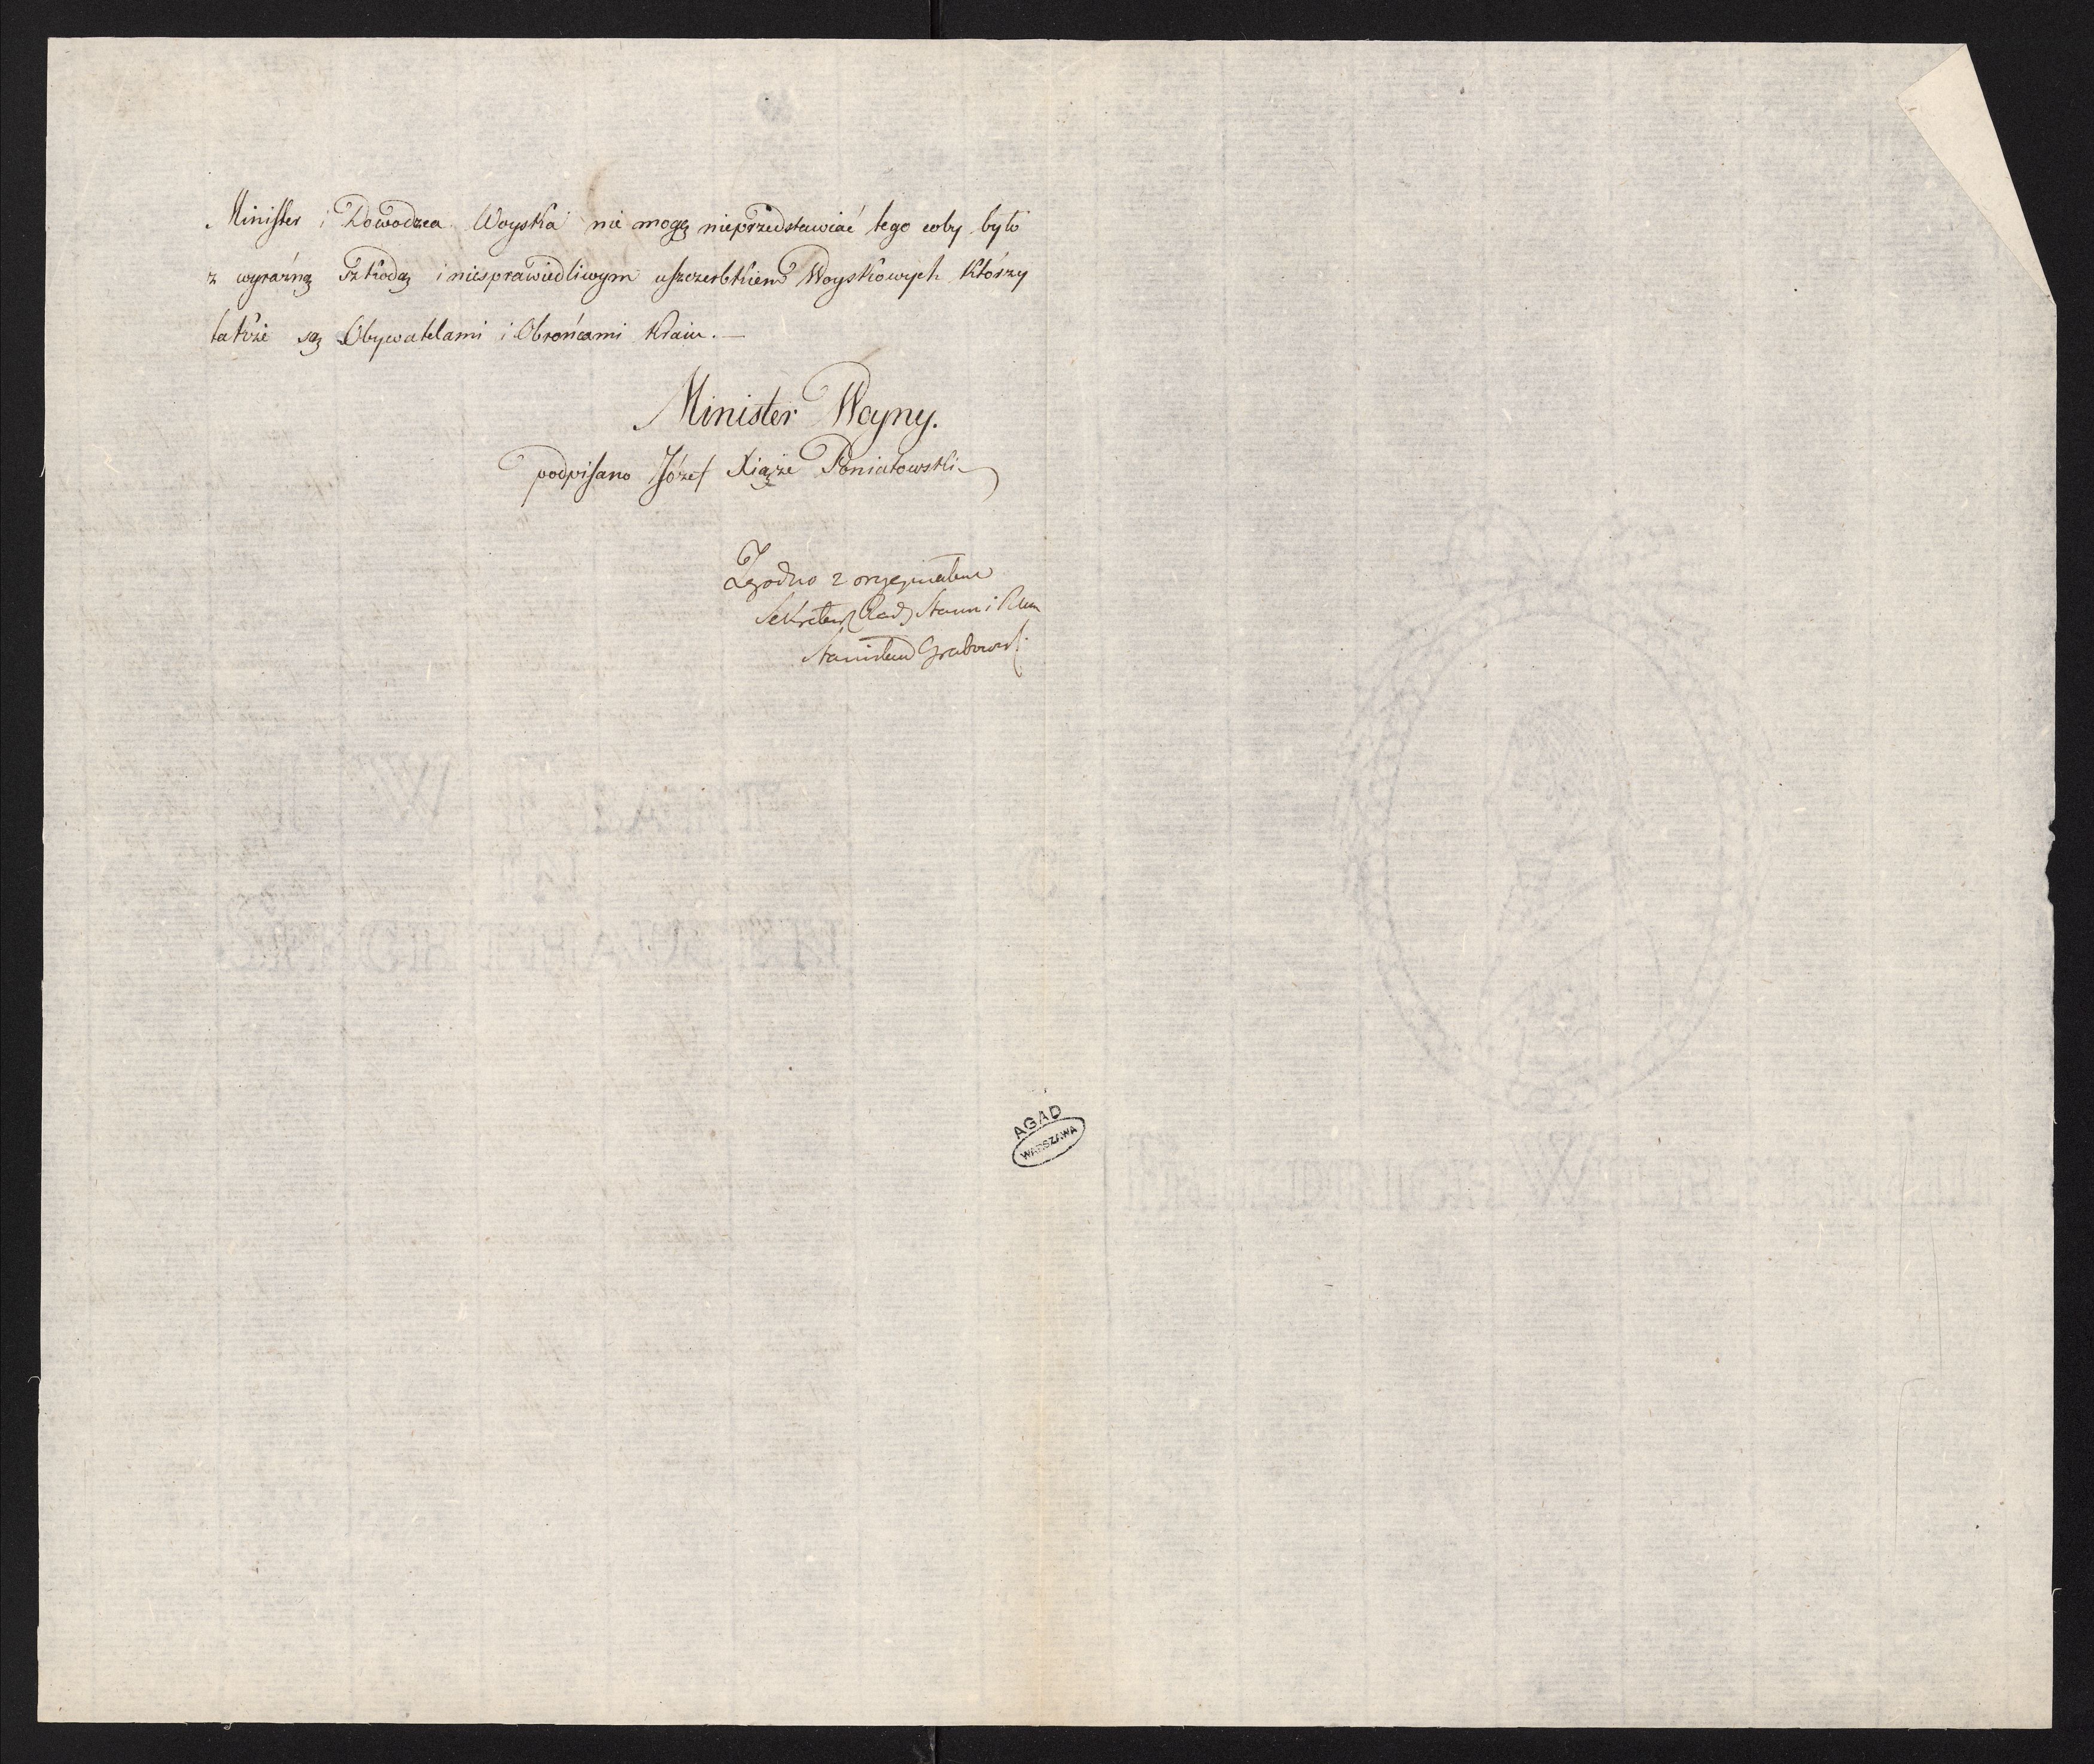 Minister i Dowodzca Woyska nie mogę nieprzedstawiać tego coby było
z wyraźną szkodą i niesprawiedliwym uszczerbkiem Woyskowych którzy
także są Obywatelami i Obrońcami Kraiu. —
Minister Woyny.
podpisano Józef Xiąże Poniatowski
Zgodno z oryginałem
Sekretarz Rady Stanu i
Stanisław Grabowski
AGAD
WARSZAWA